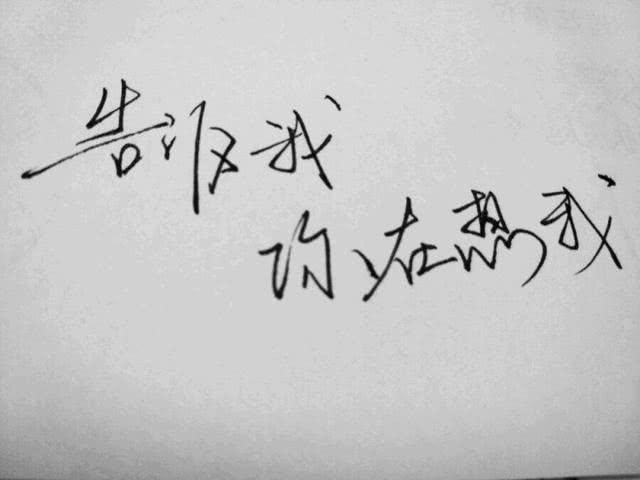 告诉我
你在想我